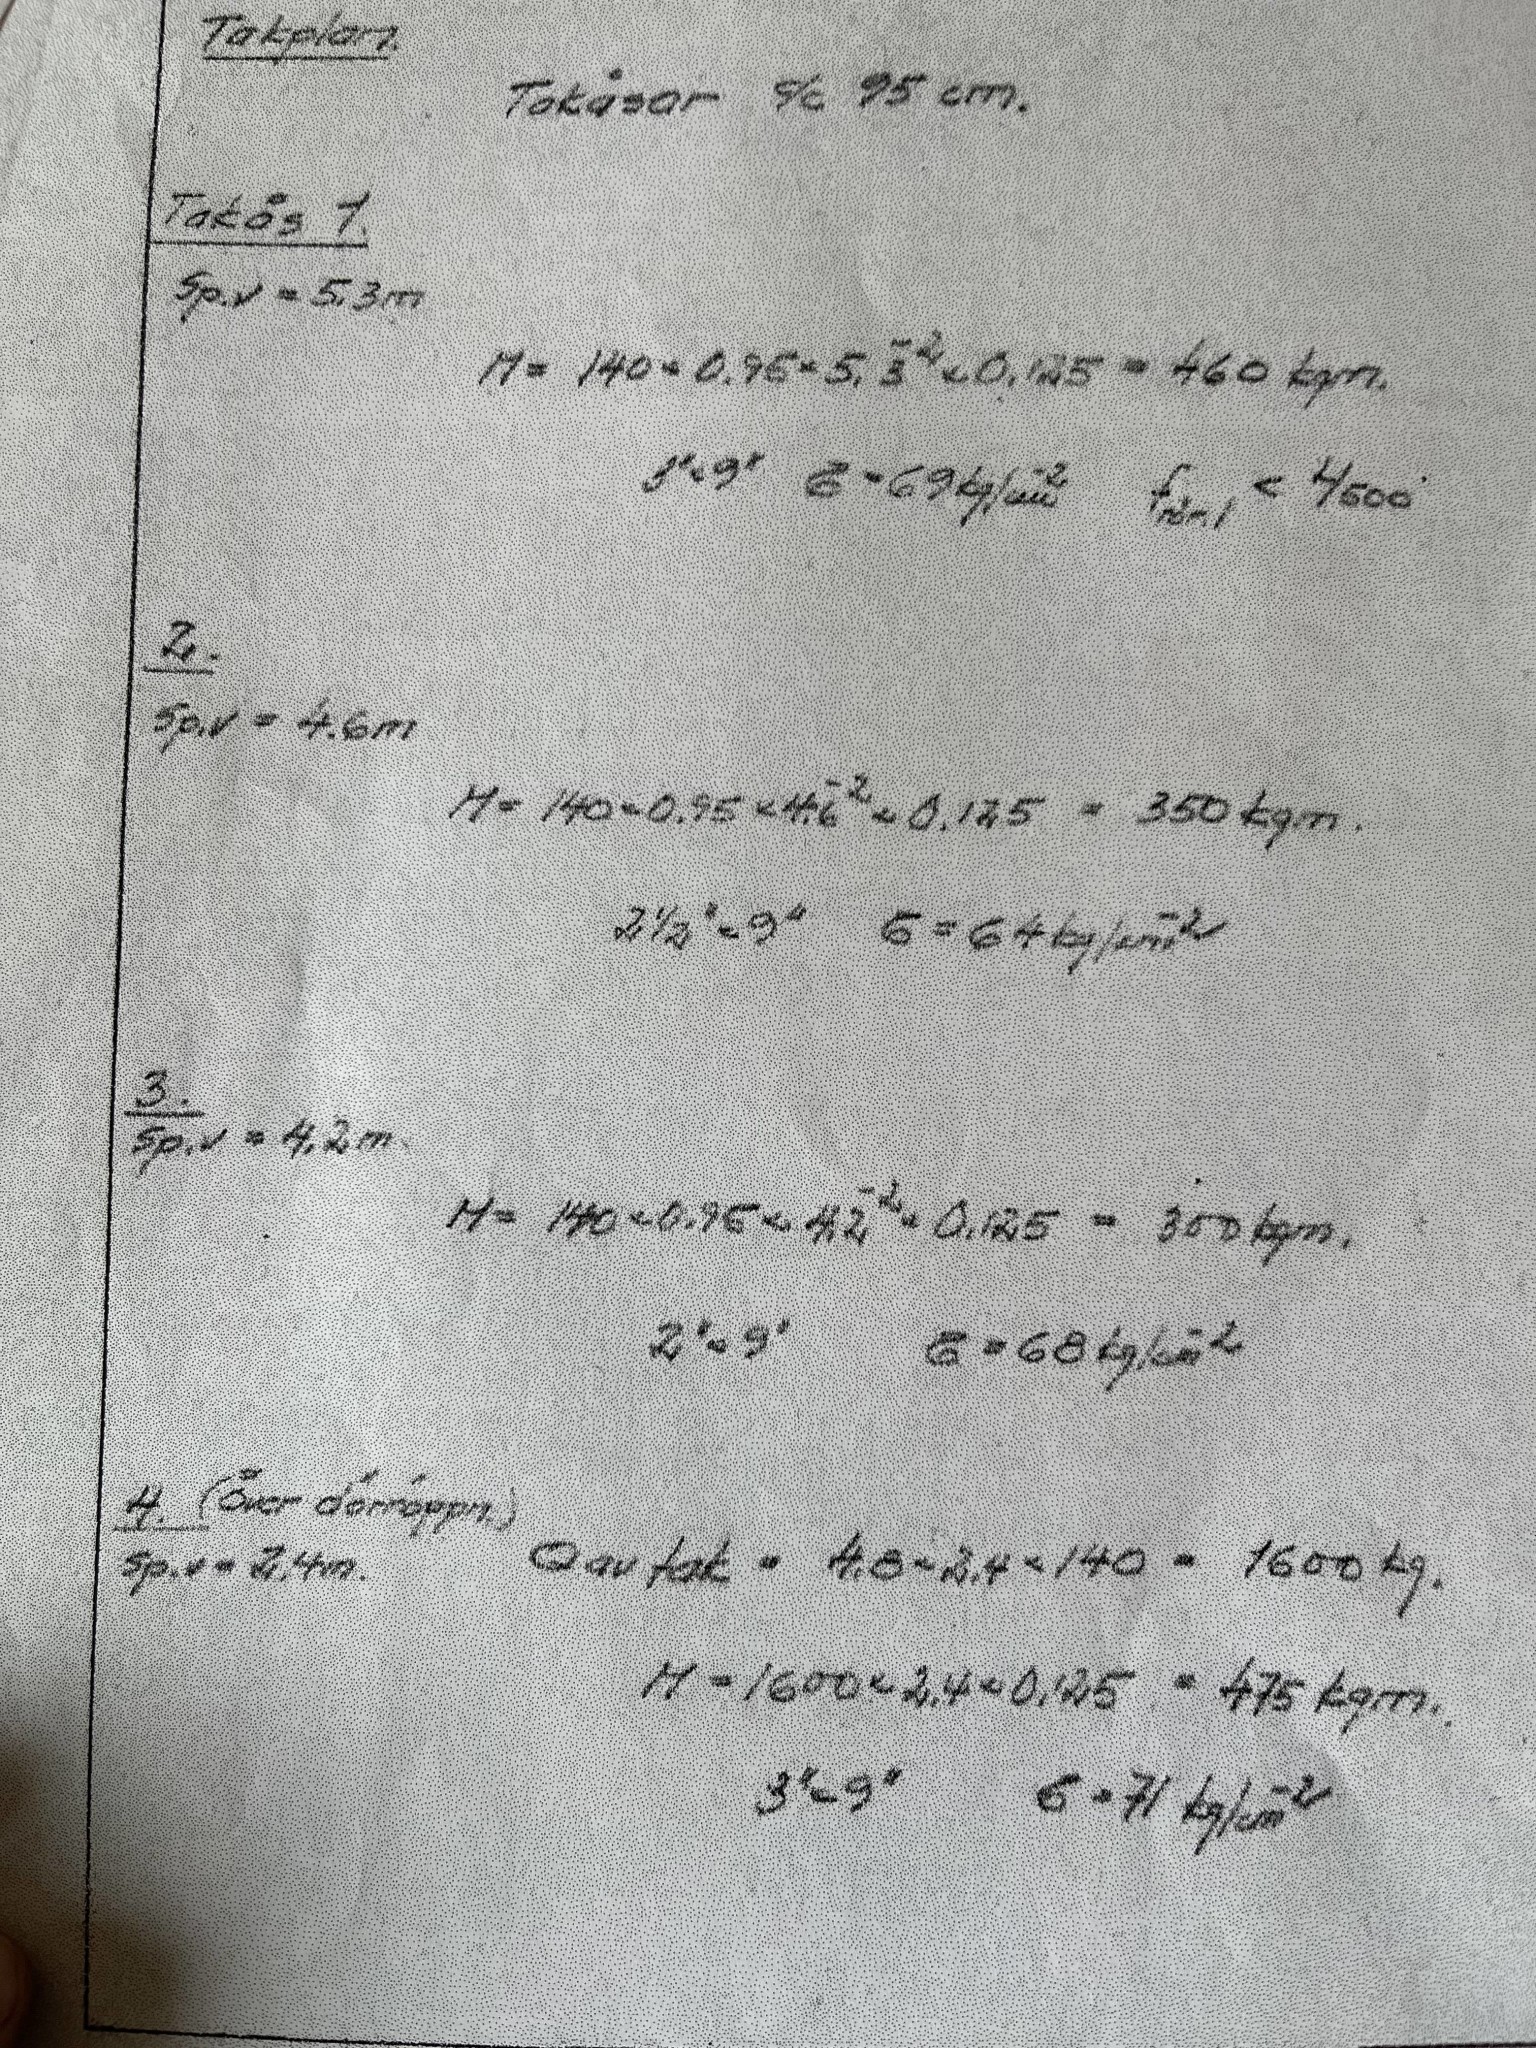 Takplan.
Takåsar c/c 95 cm.
Takås 1.
Sp.v = 5.3m
M = 140 × 0.95 × 5.3² × 0.125 = 460 kgm.
3" × 9" σ = 69 kg/cm² f < 1/500
2.
Sp.v = 4.6m
M = 140 × 0.95 × 4.6² × 0.125 = 350 kgm.
2 1/2" × 9" σ = 64 kg/cm²
3.
Sp.v = 4.2m.
M = 140 × 0.95 × 4.2² × 0.125 = 300 kgm.
2" × 9" σ = 68 kg/cm²
4. (Över dörröppn.)
Sp.v = 2.4m.
Q av tak = 4.8 × 2.4 × 140 = 1600 kg.
M = 1600 × 2.4 × 0.125 = 475 kgm.
3" × 9" σ = 71 kg/cm²